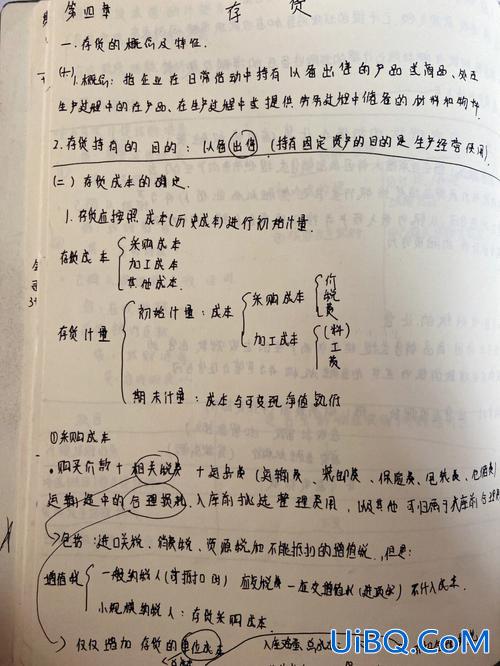 第四章 存货
一.存货的概念及特征.
(一) 1.概念: 指企业在日常活动中持有以备出售的产品或商品、处在
生产过程中的在产品、在生产过程中或提供劳务过程中储备的材料和物料
2.存货持有的目的: 以备出售 (持有固定资产的目的是生产经营使用)
(二) 存货成本的确定.
1.存货应按照成本(历史成本)进行初始计量.
存货成本
采购成本
加工成本
其他成本
存货计量
初始计量: 成本
采购成本
价
税
费
加工成本
(料)
工
费
期末计量: 成本与可变现净值孰低
①采购成本
•购买价款+相关税费+运杂费(运输费、装卸费、保险费、包装费、仓储费)
运输途中的合理损耗、入库前挑选整理费用,以及其他可归属于
包括: 进口关税、消费税、资源税和不能抵扣的增值税,但是:
增值税
一般纳税人(可抵扣的) 应交税费—应交增值税(进项税) 不计入成本.
小规模纳税人: 存货采购成本.
仅仅增加存货的单位成本
UiBQ.CoM